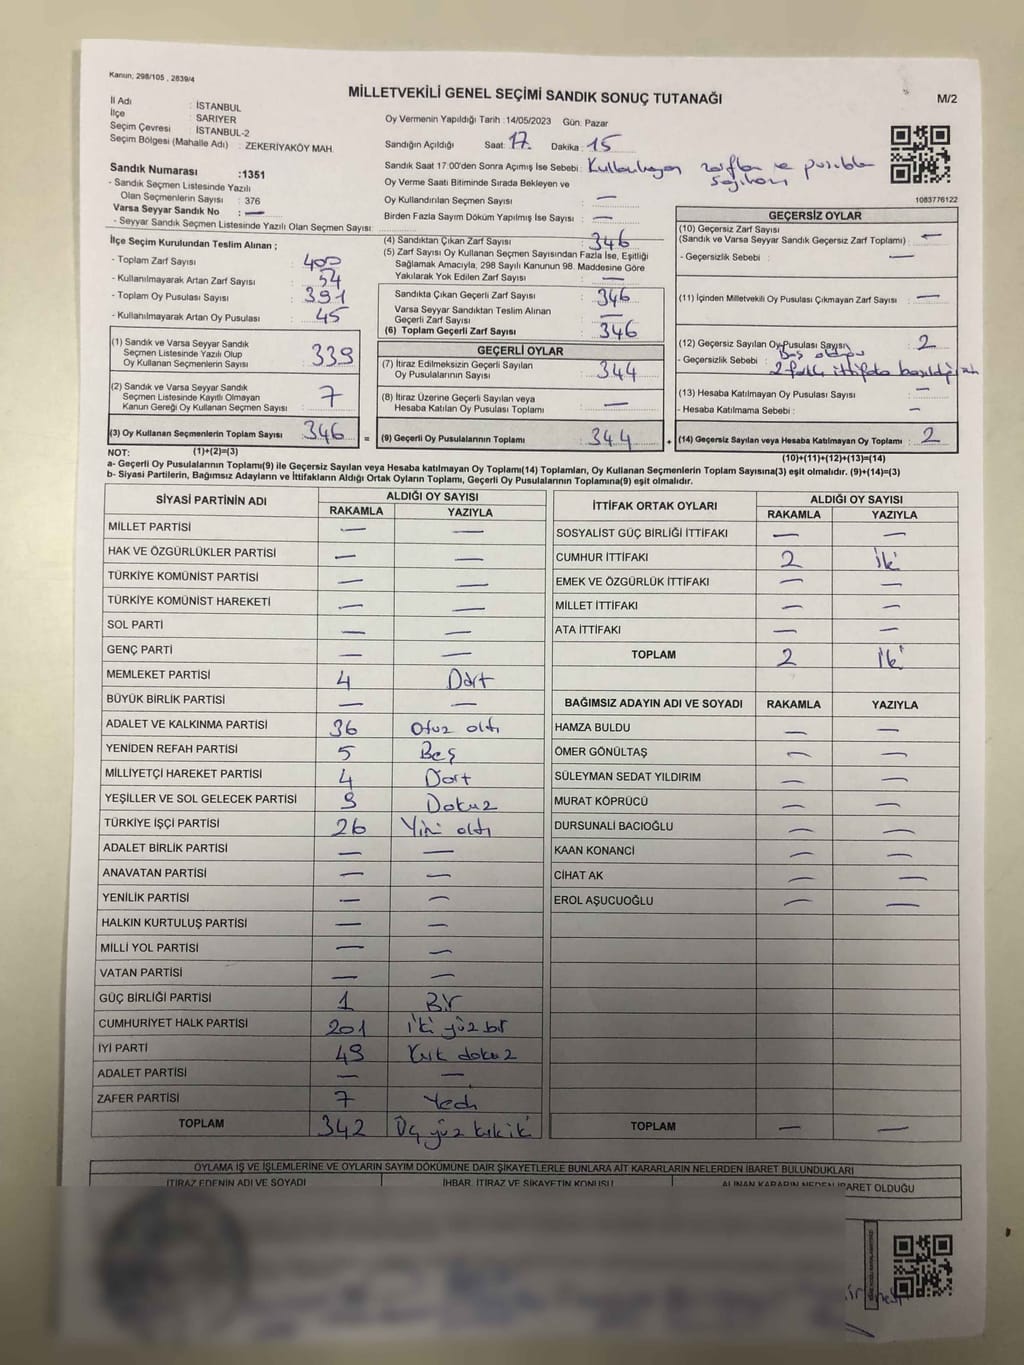 Kanun, 298/105 , 2839/4
MİLLETVEKİLİ GENEL SEÇİMİ SANDIK SONUÇ TUTANAĞI
M/2
İl Adı : İSTANBUL
İlçe : SARIYER
Seçim Çevresi : İSTANBUL-2
Seçim Bölgesi (Mahalle Adı) : ZEKERİYAKÖY MAH.
Oy Vermenin Yapıldığı Tarih : 14/05/2023 Gün: Pazar
Sandığın Açıldığı Saat: 17. Dakika : 15
Sandık Saat 17:00'den Sonra Açımış İse Sebebi : zarfları ve
Oy Verme Saati Bitiminde Sırada Bekleyen ve
Oy Kullandırılan Seçmen Sayısı : —
Birden Fazla Sayım Döküm Yapılmış İse Sayısı : —
1083776122
Sandık Numarası :1351
- Sandık Seçmen Listesinde Yazılı
Olan Seçmenlerin Sayısı : 376
Varsa Seyyar Sandık No : —
- Seyyar Sandık Seçmen Listesinde Yazılı Olan Seçmen Sayısı:
İlçe Seçim Kurulundan Teslim Alınan ;
- Toplam Zarf Sayısı : 400
- Kullanılmayarak Artan Zarf Sayısı : 54
- Toplam Oy Pusulası Sayısı : 391
- Kullanılmayarak Artan Oy Pusulası : 45
(1) Sandık ve Varsa Seyyar Sandık
Seçmen Listesinde Yazılı Olup
Oy Kullanan Seçmenlerin Sayısı : 339
(2) Sandık ve Varsa Seyyar Sandık
Seçmen Listesinde Kayıtlı Olmayan
Kanun Gereği Oy Kullanan Seçmen Sayısı : 7
(3) Oy Kullanan Seçmenlerin Toplam Sayısı : 346
(1)+(2)=(3)
(4) Sandıktan Çıkan Zarf Sayısı : 346
(5) Zarf Sayısı Oy Kullanan Seçmen Sayısından Fazla İse, Eşitliği
Sağlamak Amacıyla, 298 Sayılı Kanunun 98. Maddesine Göre
Yakılarak Yok Edilen Zarf Sayısı : —
Sandıkta Çıkan Geçerli Zarf Sayısı : 346
Varsa Seyyar Sandıktan Teslim Alınan
Geçerli Zarf Sayısı : —
(6) Toplam Geçerli Zarf Sayısı : 346
GEÇERLİ OYLAR
(7) İtiraz Edilmeksizin Geçerli Sayılan
Oy Pusulalarının Sayısı : 344
(8) İtiraz Üzerine Geçerli Sayılan veya
Hesaba Katılan Oy Pusulası Toplamı : —
= (9) Geçerli Oy Pusulalarının Toplamı : 344
GEÇERSİZ OYLAR
(10) Geçersiz Zarf Sayısı
(Sandık ve Varsa Seyyar Sandık Geçersiz Zarf Toplamı) : —
- Geçersizlik Sebebi : —
(11) İçinden Milletvekili Oy Pusulası Çıkmayan Zarf Sayısı : —
(12) Geçersiz Sayılan Oy Pusulası Sayısı : 2
- Geçersizlik Sebebi : Boş
2 farklı ittifaka
(13) Hesaba Katılmayan Oy Pusulası Sayısı : —
- Hesaba Katılmama Sebebi : —
+ (14) Geçersiz Sayılan veya Hesaba Katılmayan Oy Toplamı : 2
(10)+(11)+(12)+(13)=(14)
NOT:
a- Geçerli Oy Pusulalarının Toplamı(9) ile Geçersiz Sayılan veya Hesaba katılmayan Oy Toplamı(14) Toplamları, Oy Kullanan Seçmenlerin Toplam Sayısına(3) eşit olmalıdır. (9)+(14)=(3)
b- Siyasi Partilerin, Bağımsız Adayların ve İttifakların Aldığı Ortak Oyların Toplamı, Geçerli Oy Pusulalarının Toplamına(9) eşit olmalıdır.
SİYASİ PARTİNİN ADI ALDIĞI OY SAYISI
RAKAMLA YAZIYLA
MİLLET PARTİSİ — —
HAK VE ÖZGÜRLÜKLER PARTİSİ — —
TÜRKİYE KOMÜNİST PARTİSİ — —
TÜRKİYE KOMÜNİST HAREKETİ — —
SOL PARTİ — —
GENÇ PARTİ — —
MEMLEKET PARTİSİ 4 Dört
BÜYÜK BİRLİK PARTİSİ — —
ADALET VE KALKINMA PARTİSİ 36 Otuz altı
YENİDEN REFAH PARTİSİ 5 Beş
MİLLİYETÇİ HAREKET PARTİSİ 4 Dört
YEŞİLLER VE SOL GELECEK PARTİSİ 9 Dokuz
TÜRKİYE İŞÇİ PARTİSİ 26 Yirmi altı
ADALET BİRLİK PARTİSİ — —
ANAVATAN PARTİSİ — —
YENİLİK PARTİSİ — —
HALKIN KURTULUŞ PARTİSİ — —
MİLLİ YOL PARTİSİ — —
VATAN PARTİSİ — —
GÜÇ BİRLİĞİ PARTİSİ 1 Bir
CUMHURİYET HALK PARTİSİ 201 İki yüz bir
İYİ PARTİ 49 Kırk dokuz
ADALET PARTİSİ — —
ZAFER PARTİSİ 7 Yedi
TOPLAM 342 Üç yüz kırk iki
İTTİFAK ORTAK OYLARI ALDIĞI OY SAYISI
RAKAMLA YAZIYLA
SOSYALİST GÜÇ BİRLİĞİ İTTİFAKI — —
CUMHUR İTTİFAKI 2 İki
EMEK VE ÖZGÜRLÜK İTTİFAKI — —
MİLLET İTTİFAKI — —
ATA İTTİFAKI — —
TOPLAM 2 İki
BAĞIMSIZ ADAYIN ADI VE SOYADI RAKAMLA YAZIYLA
HAMZA BULDU — —
ÖMER GÖNÜLTAŞ — —
SÜLEYMAN SEDAT YILDIRIM — —
MURAT KÖPRÜCÜ — —
DURSUNALİ BACIOĞLU — —
KAAN KONANCİ — —
CİHAT AK — —
EROL AŞUCUOĞLU — —
TOPLAM — —
OYLAMA İŞ VE İŞLEMLERİNE VE OYLARIN SAYIM DÖKÜMÜNE DAİR ŞİKAYETLERLE BUNLARA AİT KARARLARIN NELERDEN İBARET BULUNDUKLARI
İTİRAZ EDENİN ADI VE SOYADI İHBAR, İTİRAZ VE ŞİKAYETİN KONUSU ALINAN KARARIN NEDEN İBARET OLDUĞU